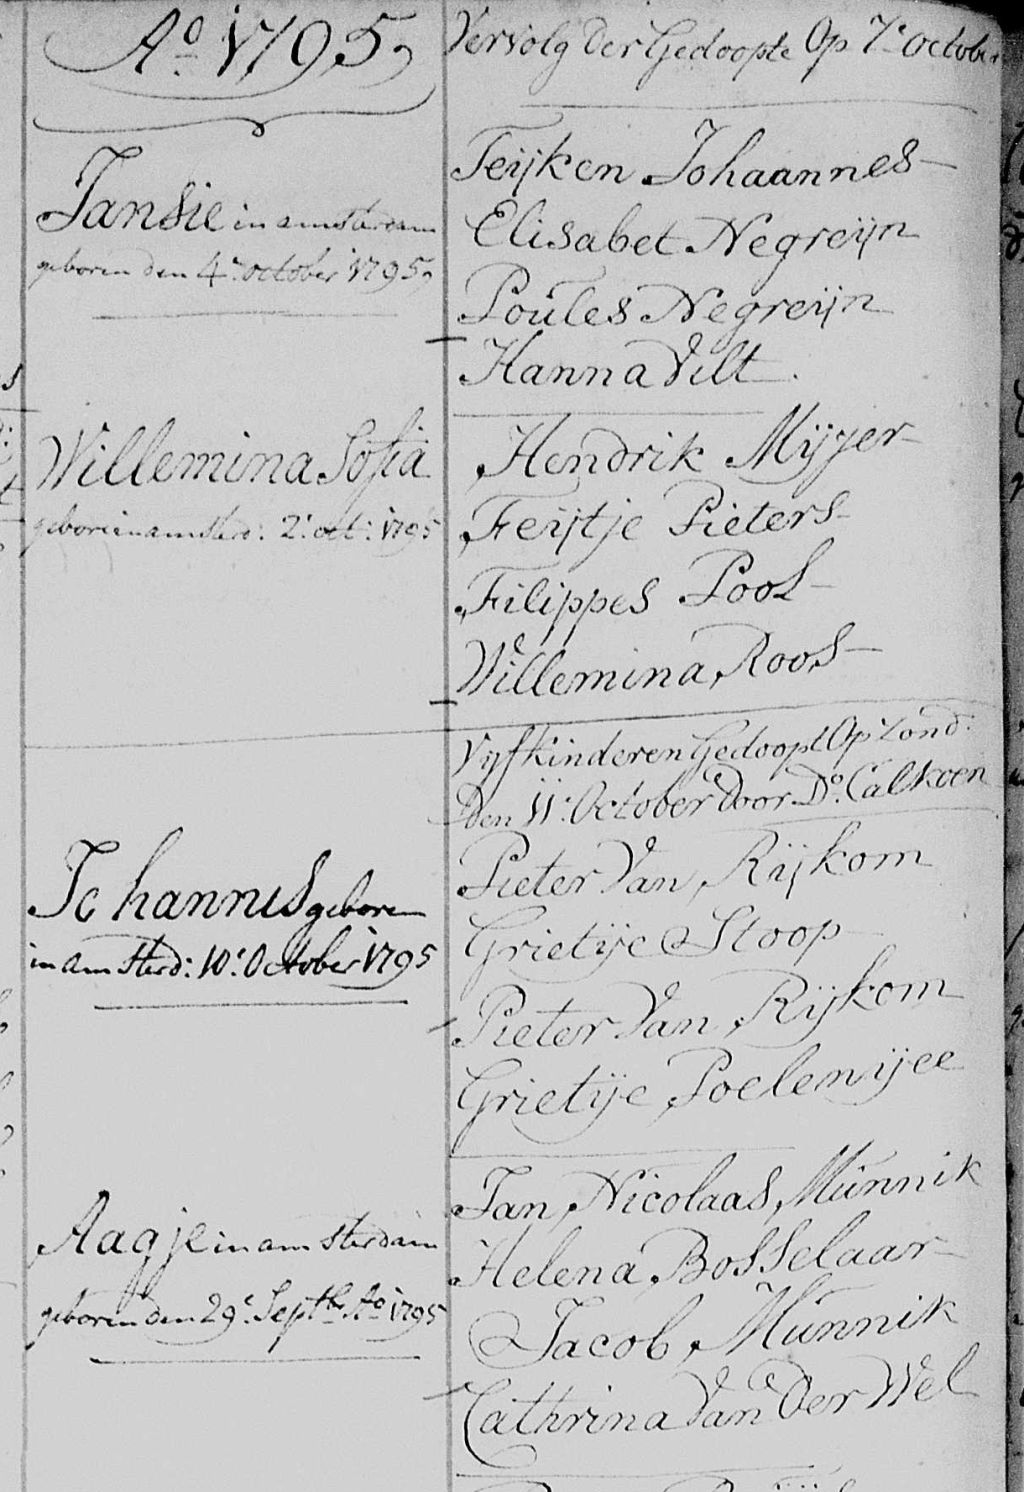 Ao 1795,
Vervolg der Gedoopte Op 7e october
Jansie in amsterdam
geboren den 4e october 1795,
Feijken Johaannes
Elisabet Negreijn
Poules Negreijn
Hanna Vilt
Willemina Sofia
geboren in amsterd: 2: oct: 1795
Hendrik Mijjer
Feijtje Pieters
Filippes Pool
Willemina Roos
Vijf kinderen Gedoopt Op Zond:
Den 11e October door Do. Calkoen
Johannis geboren
in amsterd: 10e October 1795
Pieter Van Rijkom
Grietije Stoop
Pieter Van Rijkom
Grietije Poelemijee
Aagje in amsterdam
geboren den 29e Septbr Ao 1795
Jan Nicolaas Munnik
Helena Bosselaar
Jacob Munnik
Cathrina Van der Wel